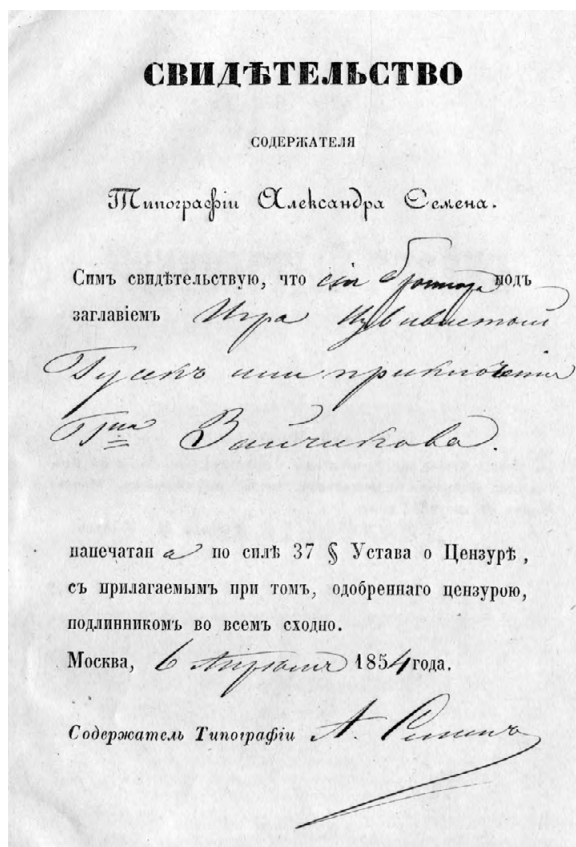 СВИДѢТЕЛЬСТВО
СОДЕРЖАТЕЛЯ
Типографіи Александра Семена.
Симъ свидѣтельствую, что сія брошюра подъ
заглавіемъ Игра Извивистый
Гусекъ или приключенія
Гна Зайчикова.
напечатана по силѣ 37 § Устава о Цензурѣ,
съ прилагаемымъ при томъ, одобреннаго цензурою,
подлинникомъ во всемъ сходно.
Москва, 6 Апрѣля 1854 года.
Содержатель Типографіи А. Семенъ